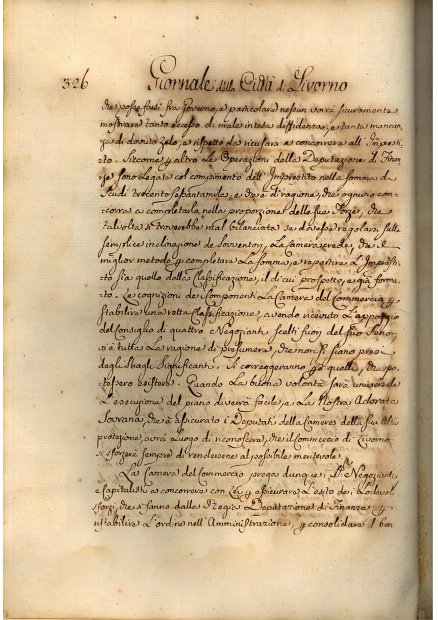 326 Giornale della Città di Livorno
che possa farsi fra Governo, e particolare nessun vorrà sicuramente
mostrare tanto eccesso di male intesa diffidenza, e tanta mancan
za di dovuto zelo, e rispetto da ricusarsi a concorrere all' Impresti
to. Siccome 
 altro Le Operazioni della Deputazione di Finan
ze sono Legate col compimento dell' Imprestito nella somma di
Scudi trecento sepantamila, e che è di ragione, che ognuno con
corra a completarla nella proporzione delle sue Forze, che
talvolta si troverebbe mal bilanciata se dovesse regolarsi sulla
semplice inclinazione de Sovventori, La Camera crede, che il
miglior metodo p completare La Somma, e repartire L' Impresti
to sia quello della Classificazione, il di cui prospetto, e già forma
to. Le cognizioni de Componenti La Camera del Commercio p
stabilire una retta Classificazione, avendo ricevuto L'appoggio
del Consiglio di quattro Negozianti scelti fuori del suo Seno,
vi è tutta La ragione di presumere, che non vi siano presi
degli Sbagli Significanti. Si correggeranno però quelli, che po
tessero esistere. Quando La buona volontà sarà universale
L'esecuzione del piano diverrà facile, e La Nostra Adorata
Sovrana, che à assicurato i Deputati della Camera della Sua Alta
protezione, avrà Luogo di riconoscere, che il Commercio di Livorno
si sforzerà sempre di rendersene al possibile meritevole.
La Camera del Commercio prega dunque i Negozianti,
e Capitalisti a concorrere con Lei p assicurare L'esito dei Lodevoli
sforzi, che si fanno dalla Regia Deputazione di Finanze p
ristabilire L'ordine nell' Amministrazione, p consolidare il ben